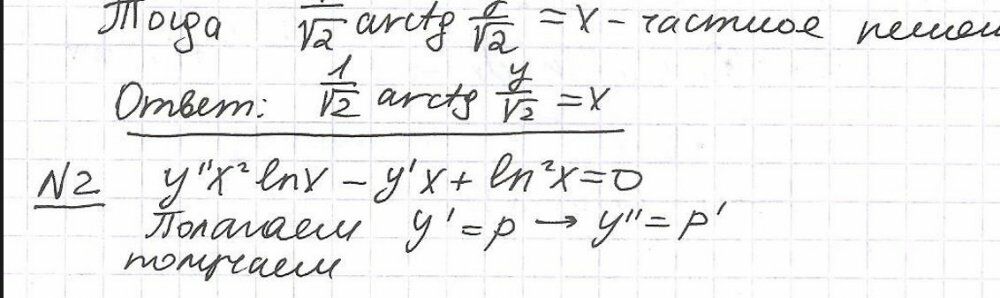 Тогда 1/√2 arctg y/√2 = x – частное решен
Ответ: 1/√2 arctg y/√2 = x
N2 y''x² lnx – y'x + ln²x = 0
Полагаем y' = p → y'' = p'
получаем